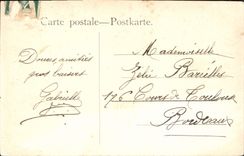 Carte postale—Postkarte.
Doux amitiés
gros baisers
Gabrielle
Mademoiselle
Zélie Barielles
176 Cours de Toulouse
Bordeaux